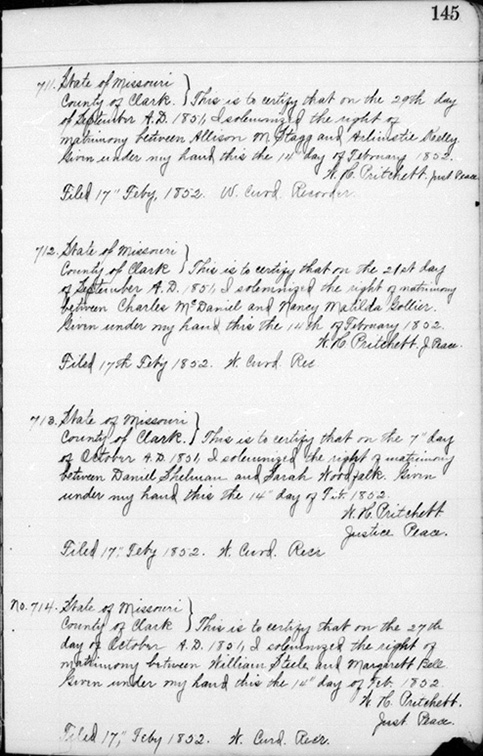 145
711. State of Missouri
County of Clark. } This is to certify that on the 29th day
of September A.D. 1851, I solemnized the right of
matrimony between Allison M Stagg and
Given under my hand this the 14" day of February 1852.
W. H. Pritchett. Just Peace
Filed 17" Feby, 1852. W. Curd. Recorder.
712. State of Missouri
County of Clark } This is to certify that on the 21st day
of September A.D. 1851, I solemnized the right of matrimony
between Charles McDaniel and Nancy Matilda Gollier.
Given under my hand this the 14th of February 1852.
W. H. Pritchett. J Peace.
Filed 17th Feby 1852. W. Curd. Rec
713. State of Missouri
County of Clark. } This is to certify that on the 7" day
of October A.D. 1851, I solemnized the right of matrimony
between Daniel Shelman and Sarah Given
under my hand this the 14" day of Feb. 1852.
W. H. Pritchett
Justice Peace.
Filed 17" Feby 1852. W. Curd. Recr
No. 714. State of Missouri
County of Clark } This is to certify that on the 27th
day of October A.D. 1851, I solemnized the right of
matrimony between William Steele, and Margarett Bell
Given under my hand this the 14" day of Feb. 1852.
W. H. Pritchett.
Just Peace.
Filed 17," Feby 1852. W. Curd. Recr.